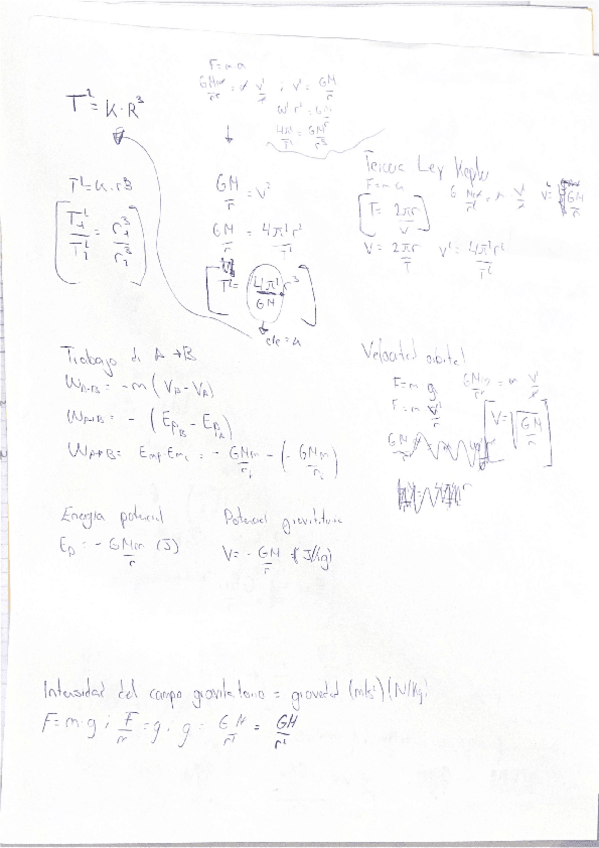 F=m·a
GMm/r² = m v²/r ; v² = GM/r
w²·r² = GM/r
4π²/T² = GM/r³
T² = K·R³
↓
T²=K·r³
[T₁²/T₂² = r₁³/r₂³]
GM/r = v²
GM/r = 4π²r²/T²
[T² = 4π²/GM · r³]
cte = k
Tercera Ley Kepler
F=m·a
G Mm/r² = m v²/r
[T = 2πr/v]
V = 2πr/T v² = 4π²r²/T²
Trabajo de A→B
W_A→B = -m (V_B - V_A)
W_A→B = - (Ep_B - Ep_A)
Velocidad orbital
F=m·g GMm/r² = m v²/r
F = m v²/r
[V=√(GM/r)]
Energía potencial
Ep = - GMm/r (J)
Potencial gravitatorio
V= - GM/r (J/kg)
Intensidad del campo gravitatorio = gravedad (m/s²) (N/kg)
F=m·g ; F/m = g ; g = GM/r² = GM/r²